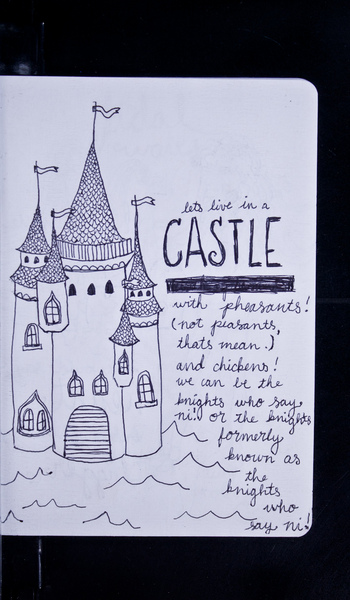 lets live in a
CASTLE
with pheasants!
(not peasants,
thats mean.)
and chickens!
we can be the
knights who say
ni! or the knights
formerly
known as
the
knights
who
say ni!